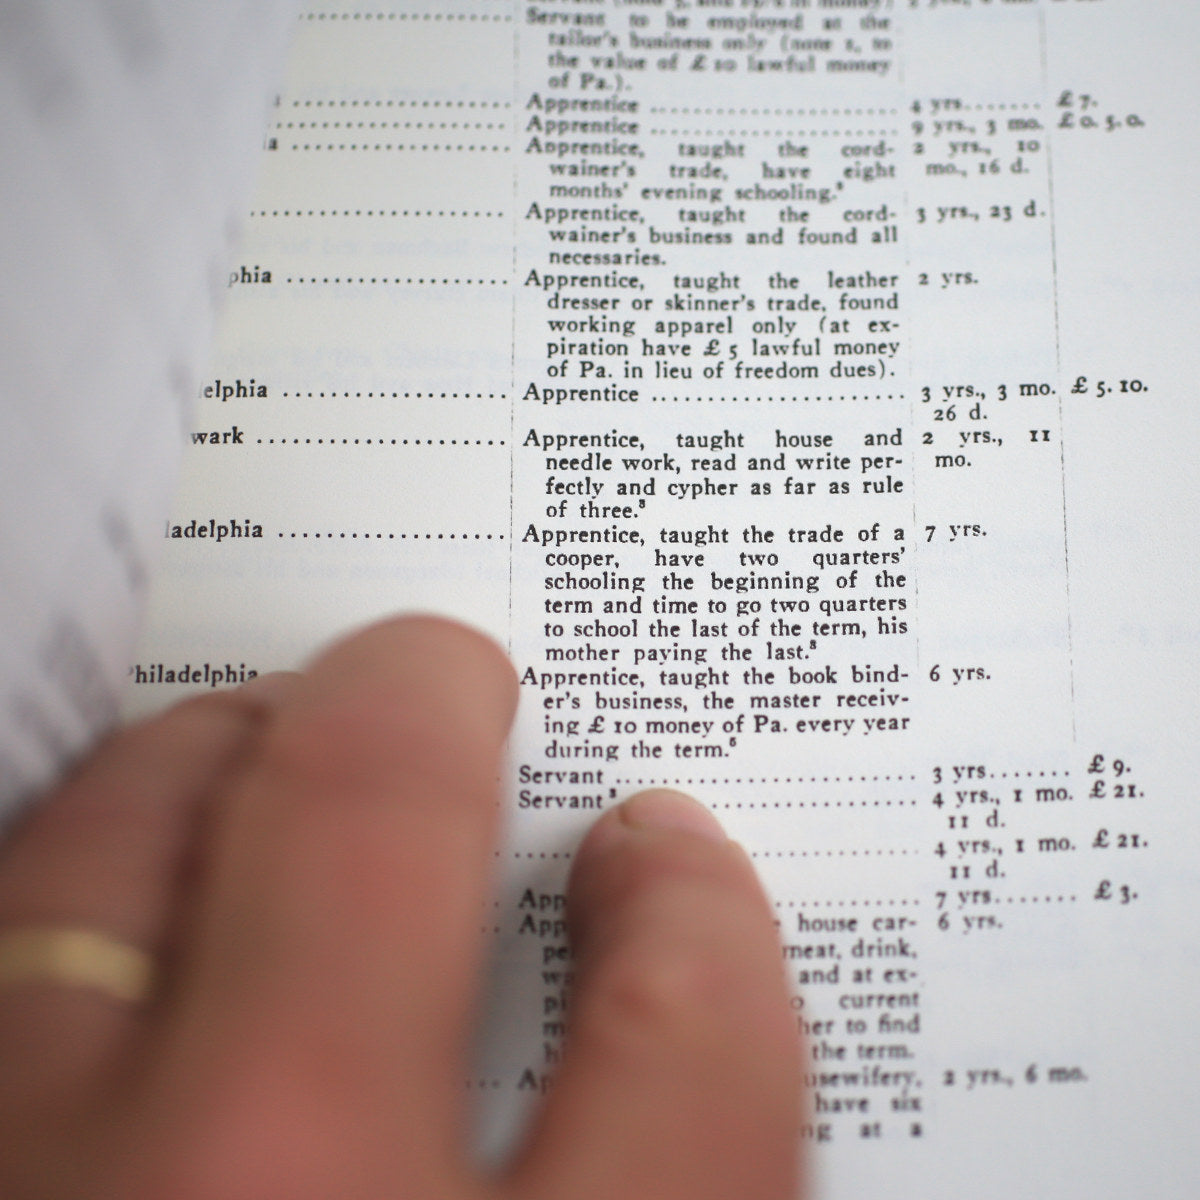 Servant to be employed at the
tailor's business only (note 1, to
the value of £ 10 lawful money
of Pa.).
Apprentice 4 yrs. £ 7.
Apprentice 9 yrs., 3 mo. £ 0. 5. 0.
Apprentice, taught the cord- 2 yrs., 10
wainer's trade, have eight mo., 16 d.
months' evening schooling.
Apprentice, taught the cord- 3 yrs., 23 d.
wainer's business and found all
necessaries.
phia Apprentice, taught the leather 2 yrs.
dresser or skinner's trade, found
working apparel only (at ex-
piration have £ 5 lawful money
of Pa. in lieu of freedom dues).
elphia Apprentice 3 yrs., 3 mo. £ 5. 10.
26 d.
wark Apprentice, taught house and 2 yrs., 11
needle work, read and write per- mo.
fectly and cypher as far as rule
of three.³
ladelphia Apprentice, taught the trade of a 7 yrs.
cooper, have two quarters'
schooling the beginning of the
term and time to go two quarters
to school the last of the term, his
mother paying the last.³
Philadelphia Apprentice, taught the book bind- 6 yrs.
er's business, the master receiv-
ing £ 10 money of Pa. every year
during the term.⁵
Servant 3 yrs. £ 9.
Servant 4 yrs., 1 mo. £ 21.
11 d.
4 yrs., 1 mo. £ 21.
11 d.
App 7 yrs. £ 3.
App house car- 6 yrs.
pe meat, drink,
and at ex-
pi current
her to find
the term.
Ap usewifery, 2 yrs., 6 mo.
have six
ng at a